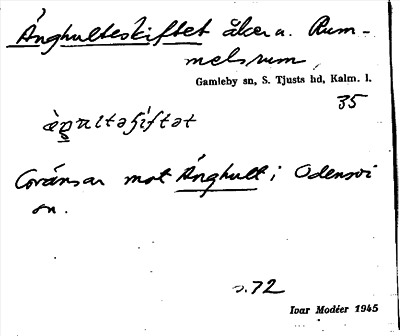 Ånghulteskiftet åker u. Rum-
melsrum
Gamleby sn, S. Tjusts hd, Kalm. l.
35
Gränsar mot Ånghult i Odensvi
sn.
s. 72
Ivar Modéer 1945